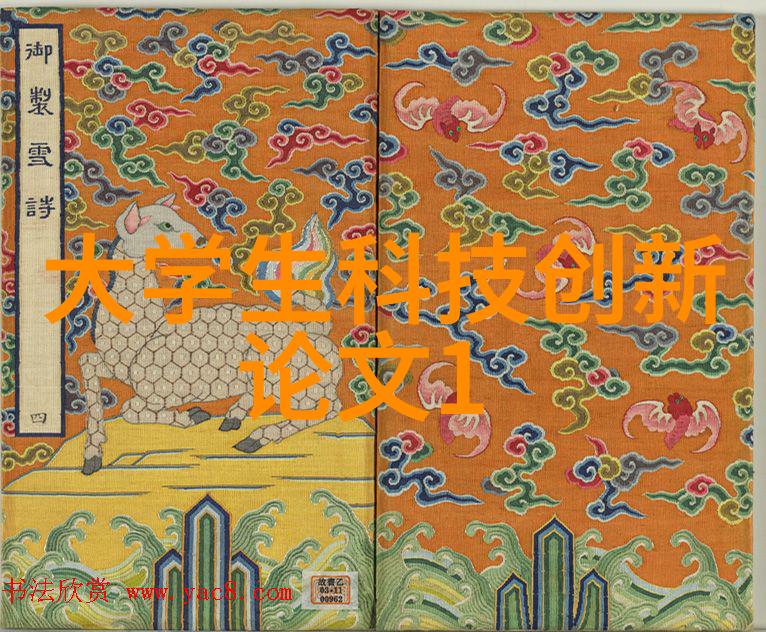 御製雪詩
四
大学生科技创新
论文1
书法欣赏 www.yac8.com
故書乙
03•11
00962